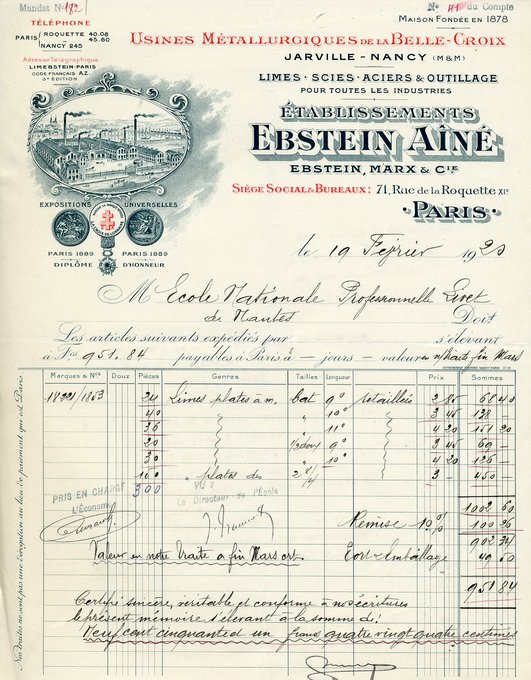 Mandat N° 182
N° 41 du Compte
TÉLÉPHONE
PARIS ROQUETTE 40.08
45.60
NANCY 245
Adresse Télégraphique
LIMEBSTEIN-PARIS
CODE FRANÇAIS A.Z.
3e ÉDITION
MAISON FONDÉE EN 1878
USINES MÉTALLURGIQUES DE LA BELLE-CROIX
JARVILLE - NANCY (M&M)
LIMES - SCIES - ACIERS & OUTILLAGE
POUR TOUTES LES INDUSTRIES
ÉTABLISSEMENTS
EBSTEIN AÎNÉ
EBSTEIN, MARX & CIE
SIÈGE SOCIAL & BUREAUX: 71, Rue de la Roquette XIe
PARIS
EXPOSITIONS UNIVERSELLES
PARIS 1889 PARIS 1889
DIPLÔME D'HONNEUR
le 19 Février 1920
M Ecole Nationale Professionnelle Livet
de Nantes Doit
Les articles suivants expédiés par s'élevant
à Frs 951.84 payables à Paris à — jours — valeur en n/traite fin Mars
Marques & Nos Douz Pièces Genres Tailles Longueur Prix Sommes
24 Limes plates à m. bat 9° retaillées 2 85 68 40
40 " 10° 3 45 138 —
36 " 11° 4 20 151 20
20 1/2 douy 9° 3 45 69 —
30 " 10° 4 20 126 —
" plates des 3 — 450 —
300
PRIS EN CHARGE
L'Économe
VU:
Le Directeur de l'École
1002 60
Remise 10% 100 26
902 34
Valeur en notre traite à fin Mars crt Port & Emballage 49 50
951 84
Certifié sincère, véritable et conforme à nos écritures
le présent mémoire s'élevant à la somme de:
Neuf cent cinquante et un francs quatre vingt quatre centimes
Nos traites ne sont pas une dérogation au lieu de paiement qui est Paris